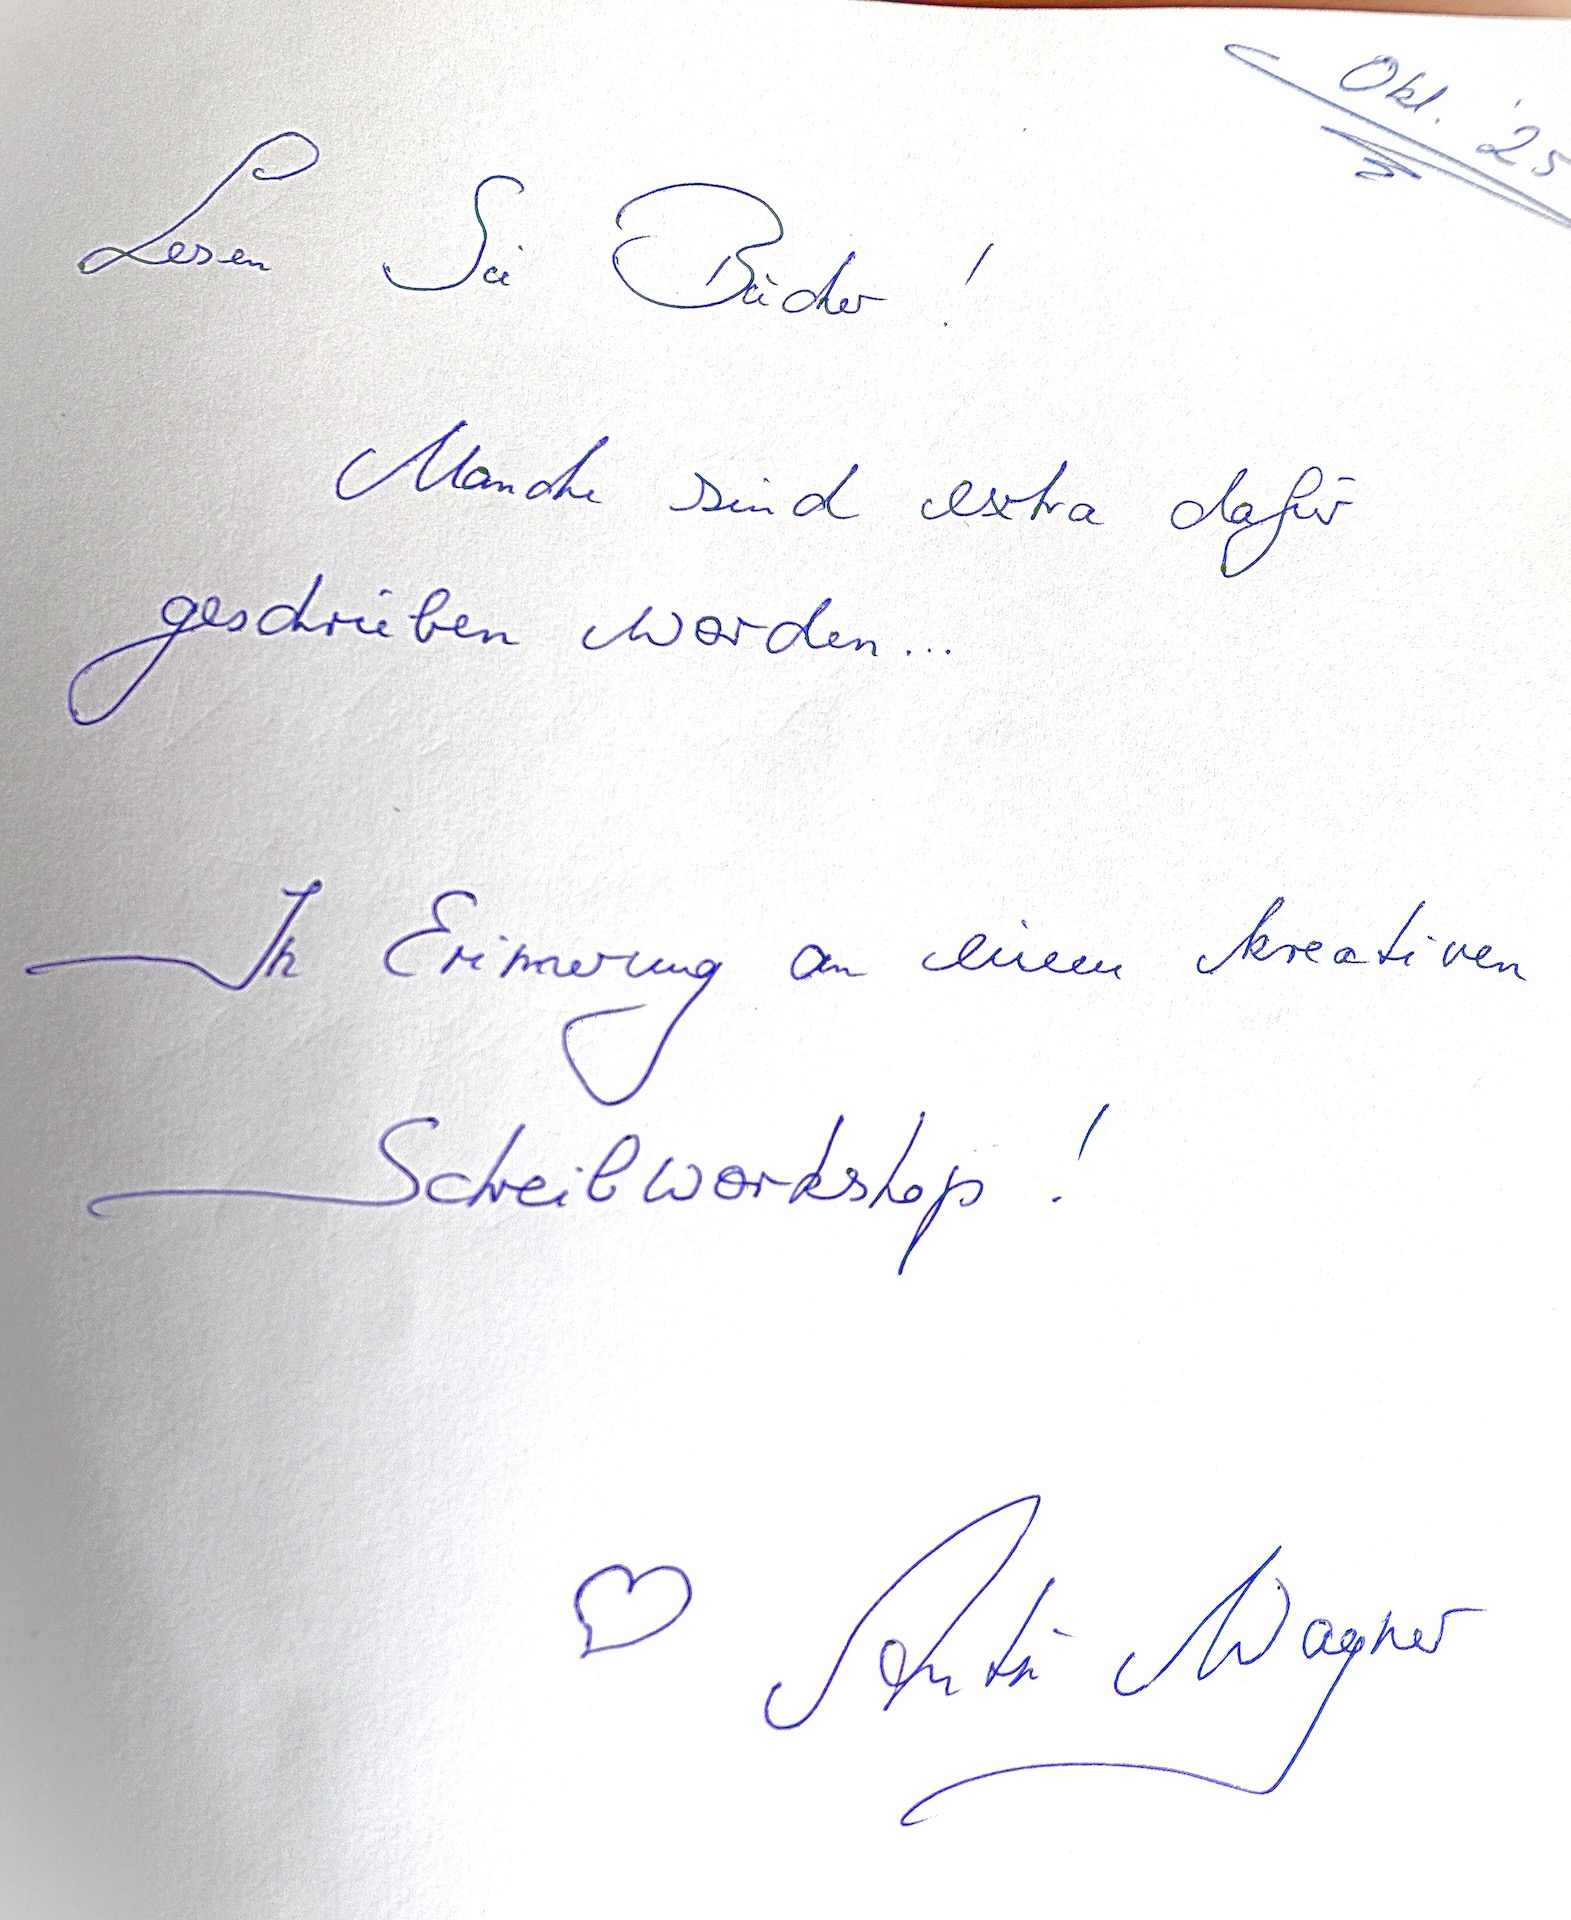 Okt. '25
Lesen Sie Bücher !
Manche sind extra dafür
geschrieben worden...
In Erinnerung an einen kreativen
Schreibworkshop !
Wagner